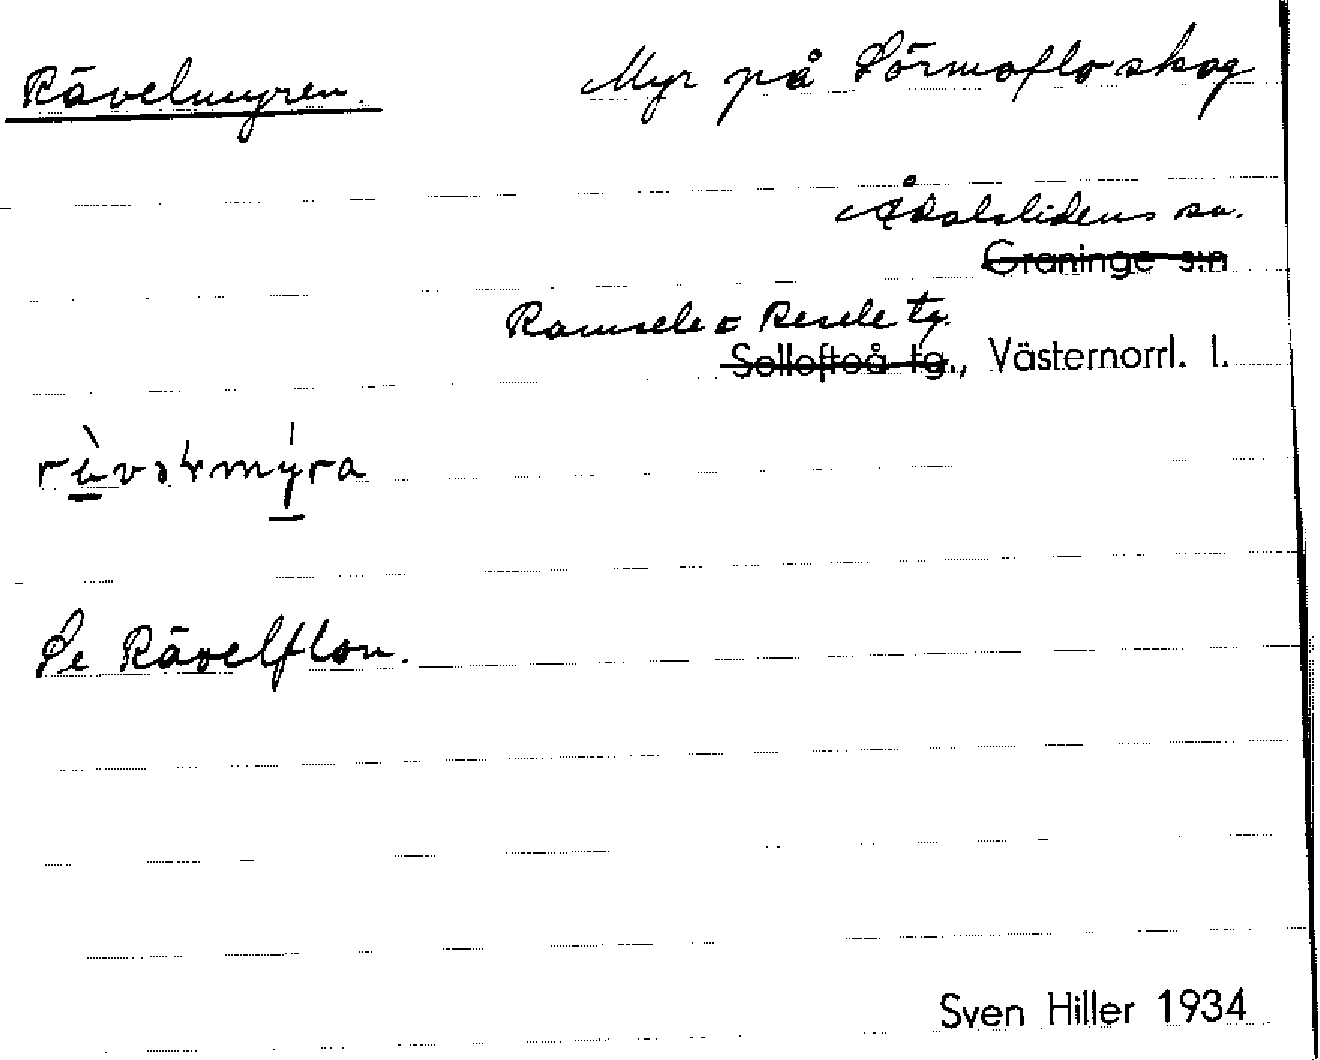 Rävelmyren. Myr på Sörmofloskog
Ådalslidens sn.
Graninge s:n
Ramsele o Resele tg.
Sollefteå tg., Västernorrl. l.
Se Rävelflon.
Sven Hiller 1934